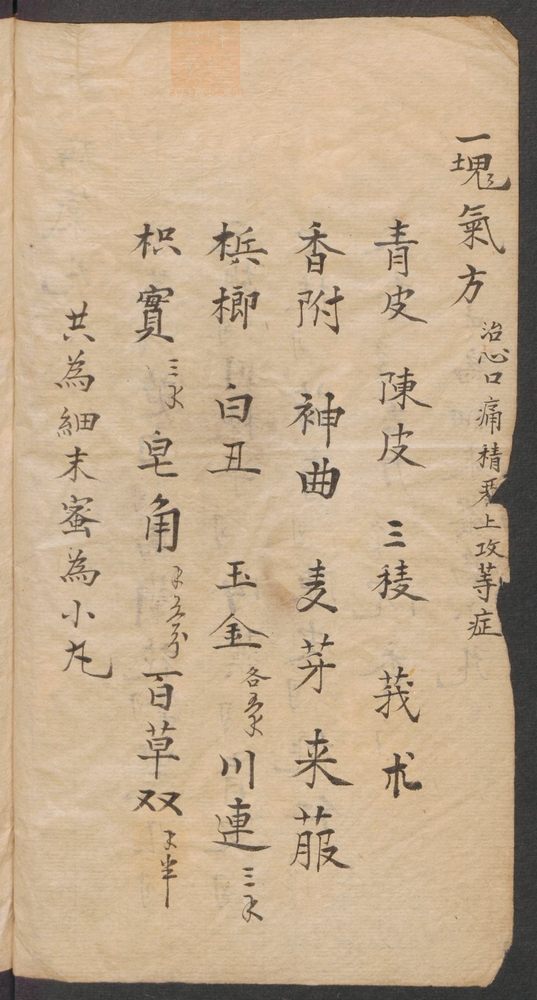 一塊氣方 治心口痛積聚上攻等症
青皮 陳皮 三稜 莪朮
香附 神曲 麦芽 来菔
梹榔 白丑 玉金各五錢 川連三錢
枳實三錢 皂角錢五分 百草双錢半
共為細末蜜為小丸